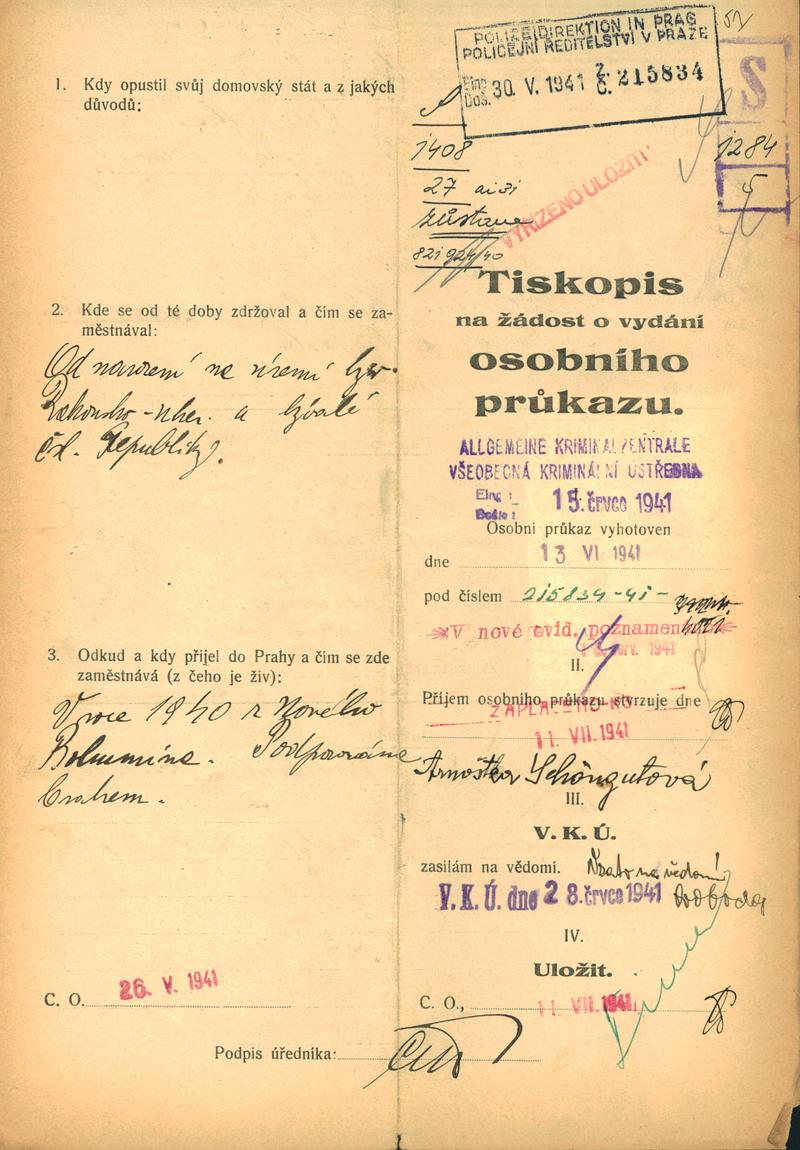 1. Kdy opustil svůj domovský stát a z jakých
důvodů:
2. Kde se od té doby zdržoval a čím se za-
městnával:
Od narození na území býv.
Rakousko-uher. a bývalé
čsl. Republiky.
3. Odkud a kdy přijel do Prahy a čím se zde
zaměstnává (z čeho je živ):
V roce 1940 z Nového
Bohumína. Podporována
bratrem.
C. O. 26. V. 1941
Podpis úředníka:
52
POLIZEIDIREKTION IN PRAG
POLICEJNÍ ŘEDITELSTVÍ V PRAZE
Eing.
Doš. 30. V. 1941 Z. Č. 215834
S
1408
1284
27
5
zůstane
VYŘÍZENO ULOŽITI
Tiskopis
na žádost o vydání
osobního
průkazu.
ALLGEMEINE KRIMINALZENTRALE
VŠEOBECNÁ KRIMINÁLNÍ ÚSTŘEDNA
Eing.:
Došlo: 15. črvce 1941
Osobní průkaz vyhotoven
dne 13 VI 1941
pod číslem 215834-41-
V nové evid. poznamen
1941
II.
Příjem osobního průkazu stvrzuje dne
11. VII. 1941
Arnoštka Schöngutová
III.
V. K. Ú.
zasílám na vědomí.
V. K. Ú. dne 28. črvce 1941
IV.
Uložit.
C. O., 11. VII. 1941